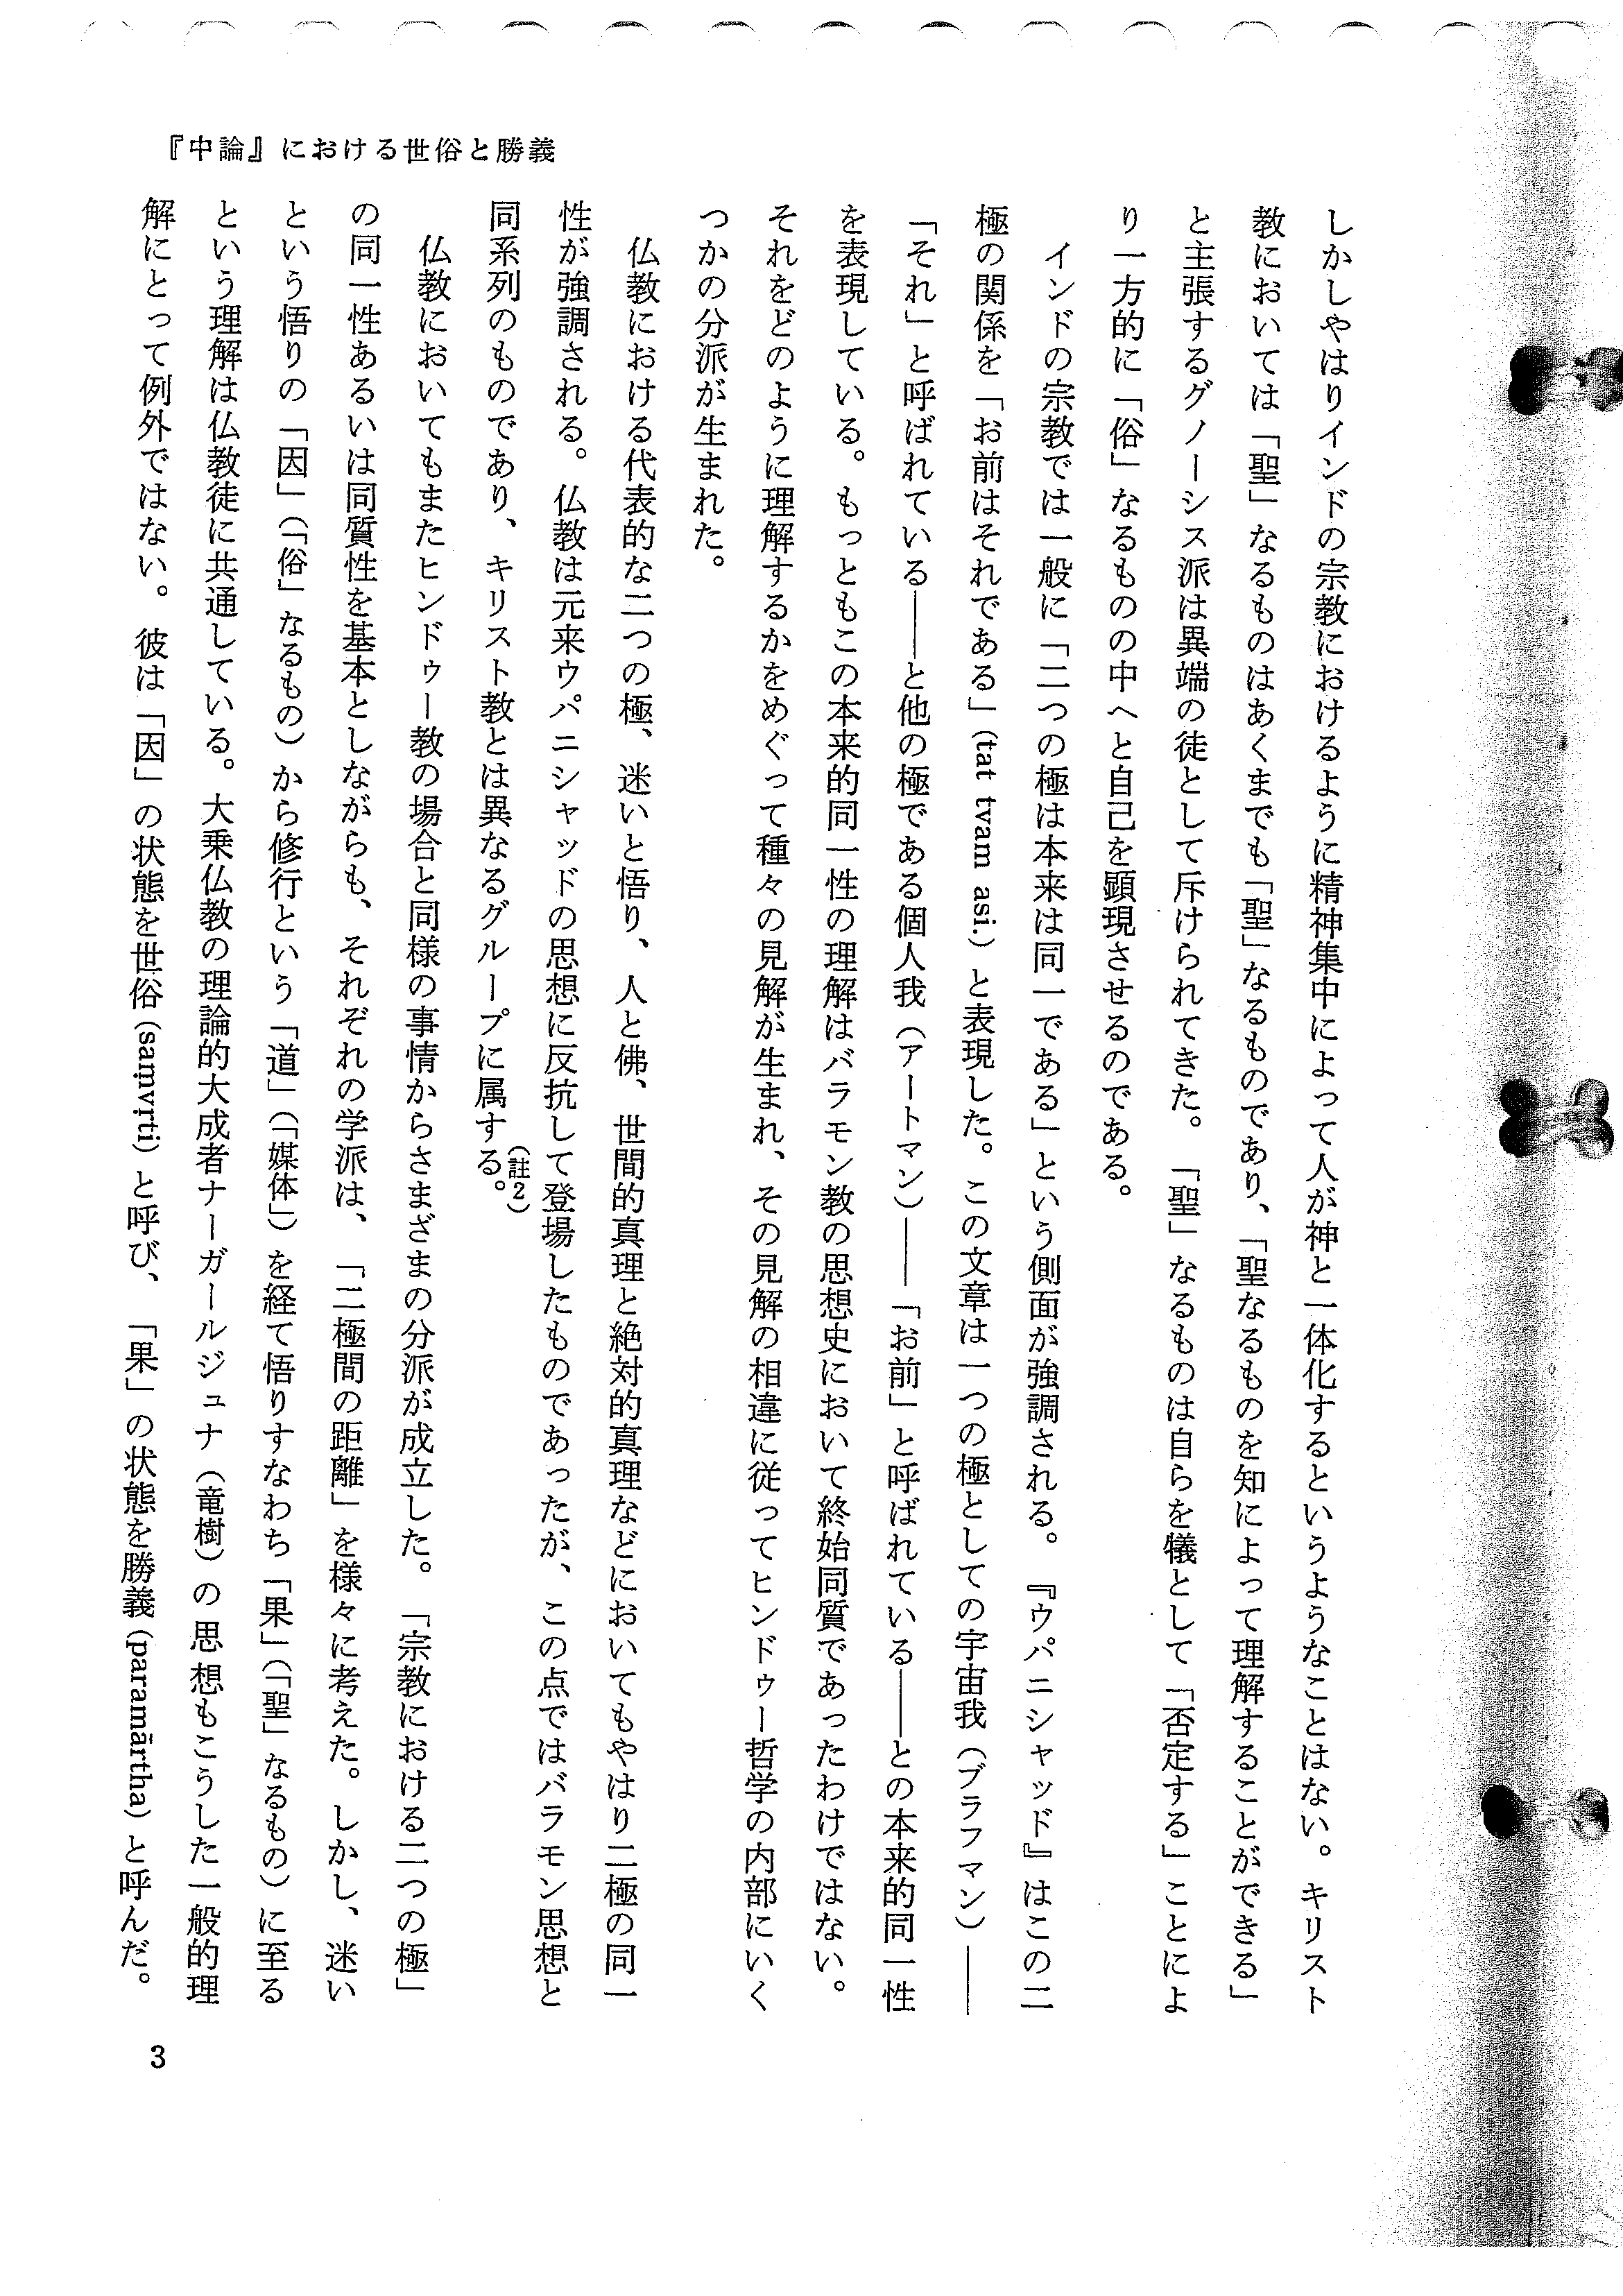 『中論』における世俗と勝義
しかしやはりインドの宗教におけるように精神集中によって人が神と一体化するというようなことはない。キリスト
教においては「聖」なるものはあくまでも「聖」なるものであり、「聖なるものを知によって理解することができる」
と主張するグノーシス派は異端の徒として斥けられてきた。「聖」なるものは自らを犠として「否定する」ことによ
り一方的に「俗」なるものの中へと自己を顕現させるのである。
インドの宗教では一般に「二つの極は本来は同一である」という側面が強調される。『ウパニシャッド』はこの二
極の関係を「お前はそれである」(tat tvam asi.)と表現した。この文章は一つの極としての宇宙我(ブラフマン)――
「それ」と呼ばれている――と他の極である個人我(アートマン)――「お前」と呼ばれている――との本来的同一性
を表現している。もっともこの本来的同一性の理解はバラモン教の思想史において終始同質であったわけではない。
それをどのように理解するかをめぐって種々の見解が生まれ、その見解の相違に従ってヒンドゥー哲学の内部にいく
つかの分派が生まれた。
仏教における代表的な二つの極、迷いと悟り、人と佛、世間的真理と絶対的真理などにおいてもやはり二極の同一
性が強調される。仏教は元来ウパニシャッドの思想に反抗して登場したものであったが、この点ではバラモン思想と
同系列のものであり、キリスト教とは異なるグループに属する。(註2)
仏教においてもまたヒンドゥー教の場合と同様の事情からさまざまの分派が成立した。「宗教における二つの極」
の同一性あるいは同質性を基本としながらも、それぞれの学派は、「二極間の距離」を様々に考えた。しかし、迷い
という悟りの「因」(「俗」なるもの)から修行という「道」(「媒体」)を経て悟りすなわち「果」(「聖」なるもの)に至る
という理解は仏教徒に共通している。大乗仏教の理論的大成者ナーガールジュナ(竜樹)の思想もこうした一般的理
解にとって例外ではない。彼は「因」の状態を世俗(saṃvṛti)と呼び、「果」の状態を勝義(paramārtha)と呼んだ。
3